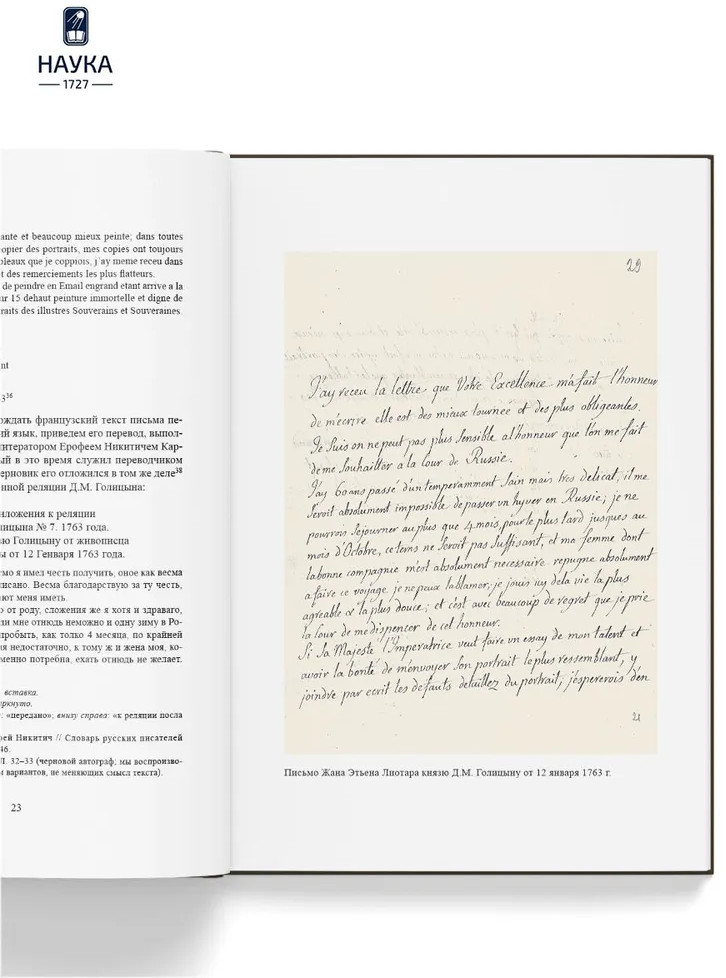 НАУКА
1727
ante et beaucoup mieux peinte; dans toutes
opier des portraits, mes copies ont toujours
bleaux que je coppiois, j'ay meme receu dans
t des remerciements les plus flatteurs.
de peindre en Email engrand etant arrive a la
ur 15 dehaut peinture immortelle et digne de
raits des illustres Souverains et Souveraines.
nt
3³⁶
ождать французский текст письма пе-
ий язык, приведем его перевод, выпол-
итератором Ерофеем Никитичем Кар-
ый в это время служил переводчиком
ерновик его отложился в том же деле³⁸
нной реляции Д.М. Голицына:
иложения к реляции
лицына № 7. 1763 года.
зю Голицыну от живописца
ы от 12 Генваря 1763 года.
емо я имел честь получить, оное как весма
писано. Весма благодарствую за ту честь,
ают меня иметь.
о от роду, сложения же я хотя и здраваго,
ли мне отнюдь неможно и одну зиму в Ро-
пробыть, как толко 4 месяца, по крайней
я недостаточно, к тому ж и жена моя, ко-
менно потребна, ехать отнюдь не желает.
вставка.
ркнуто.
: «передано»; внизу справа: «к реляции посла
рей Никитич // Словарь русских писателей
46.
Л. 32–33 (черновой автограф; мы воспроизво-
и вариантов, не меняющих смысл текста).
23
29
J'ay receu la lettre que Votre Excellence m'a fait l'honneur
de m'ecrire elle est des mieux tournée et des plus obligeantes.
Je Suis on ne peut pas plus Sensible a l'honneur que l'on me fait
de me Souhaitter a la Cour de Russie.
J'ay 60 ans passé d'un temperamment Sain mais tres delicat, il me
Seroit absolument impossible de passer un hyver en Russie; je ne
pourrois Sejourner au plus que 4 mois, pour le plus tard jusques au
mois d'Octobre, ce tems ne Seroit pas Suffisant, et ma femme dont
la bonne compagnie m'est absolument necessaire repugne absolument
a faire ce voyage, je ne peux la blamer; je jouis icy de la vie la plus
agreable & la plus douce; et c'est avec beaucoup de regret que je prie
la Cour de me dispencer de cet honneur.
Si Sa Majesté l'Imperatrice veut faire un essay de mon talent et
avoir la bonté de m'envoyer Son portrait le plus ressemblant, y
joindre par ecrit les defauts detaillez du portrait, j'espererois d'en
21
Письмо Жана Этьена Лиотара князю Д.М. Голицыну от 12 января 1763 г.